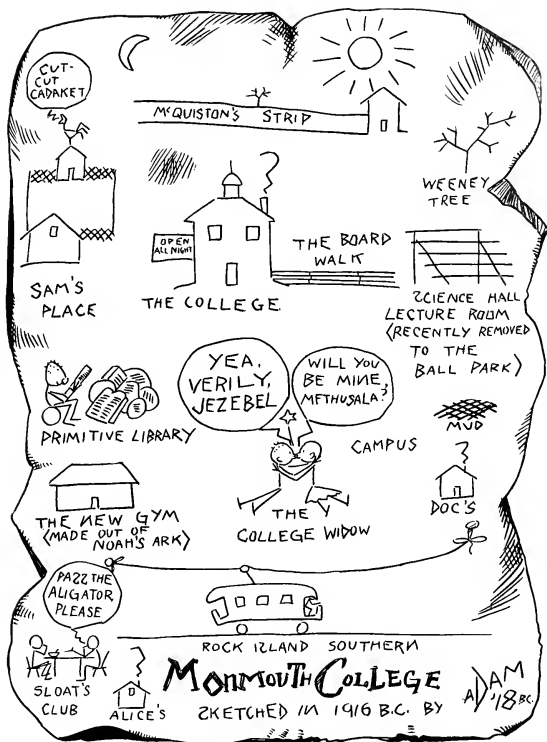 CUT-
CUT
CADAKET
McQUISTON'S STRIP
WEENEY
TREE
OPEN
ALL NIGHT
THE BOARD
WALK
SAM'S
PLACE
THE COLLEGE
SCIENCE HALL
LECTURE ROOM
(RECENTLY REMOVED
TO THE
BALL PARK)
YEA,
VERILY,
JEZEBEL
WILL YOU
BE MINE,
METHUSALA?
PRIMITIVE LIBRARY
CAMPUS
MUD
DOC'S
THE NEW GYM
(MADE OUT OF
NOAH'S ARK)
THE
COLLEGE WIDOW
PASS THE
ALIGATOR
PLEASE
ROCK ISLAND SOUTHERN
SLOAT'S
CLUB
ALICE'S
MONMOUTH COLLEGE
SKETCHED IN 1916 B.C. BY
ADAM
'18 B.C.